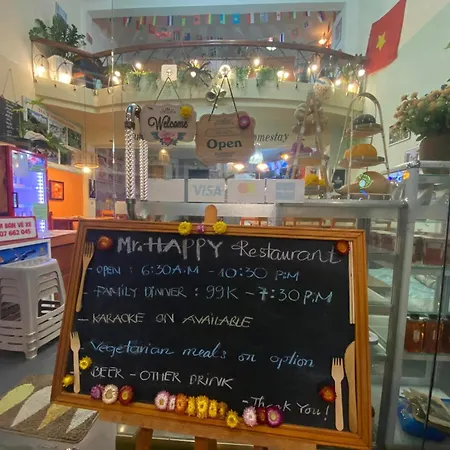 Welcome
Open
omestay
VISA
Mr.HAPPY Restaurant
- OPEN : 6:30A.M - 10:30 P.M
- FAMILY DINNER : 99K - 7:30 P.M
- KARAOKE ON AVAILABLE
- Vegetarian meals on option
- BEER - OTHER DRINK
- Thank You!